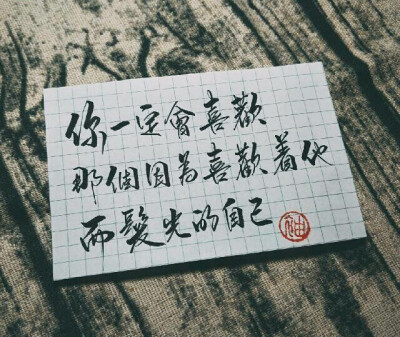 你一定會喜歡
那個因為喜歡着他
而髮光的自己